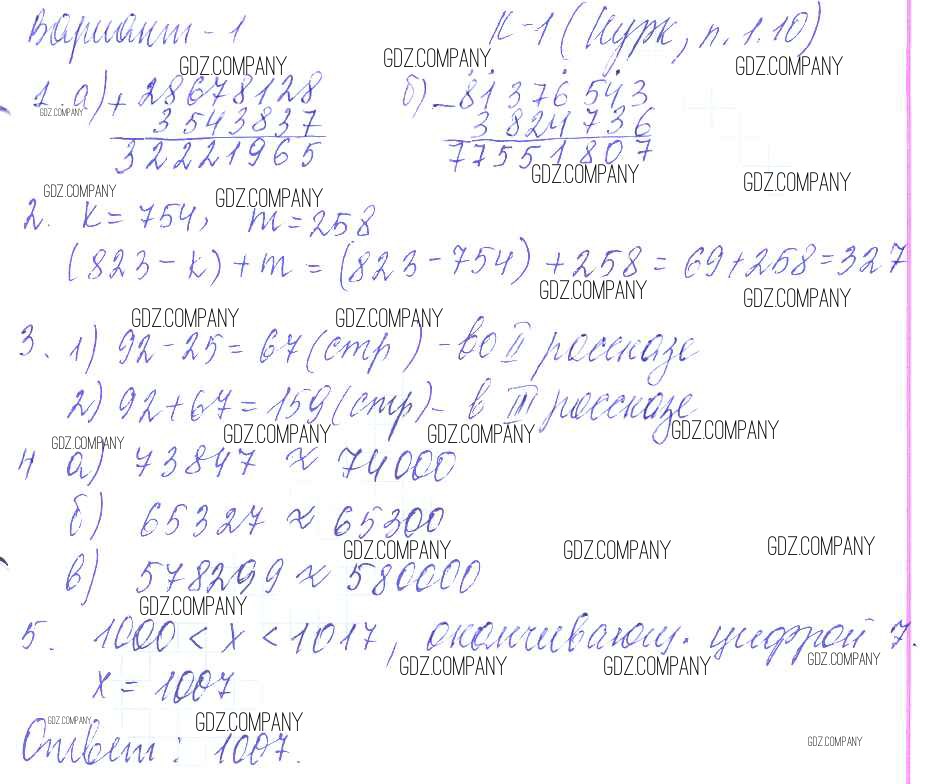 Вариант - 1 К-1 (Нурк, п. 1.10)
GDZ.COMPANY GDZ.COMPANY GDZ.COMPANY
1. а) + 28678128 б) - 81376543
GDZ.COMPANY
3543837 3824736
32221965 77551807
GDZ.COMPANY GDZ.COMPANY
GDZ.COMPANY GDZ.COMPANY
2. k = 754, m = 258
(823 - k) + m = (823 - 754) + 258 = 69 + 258 = 327
GDZ.COMPANY GDZ.COMPANY
GDZ.COMPANY GDZ.COMPANY
3. 1) 92 - 25 = 67 (стр) - во II рассказе
2) 92 + 67 = 159 (стр) - в III рассказе
GDZ.COMPANY GDZ.COMPANY GDZ.COMPANY GDZ.COMPANY
4 а) 73847 ≈ 74000
б) 65327 ≈ 65300
GDZ.COMPANY GDZ.COMPANY GDZ.COMPANY
в) 578299 ≈ 580000
GDZ.COMPANY
5. 1000 < x < 1017, оканчивающ. цифрой 7.
GDZ.COMPANY GDZ.COMPANY GDZ.COMPANY
x = 1007
GDZ.COMPANY GDZ.COMPANY
Ответ: 1007.
GDZ.COMPANY